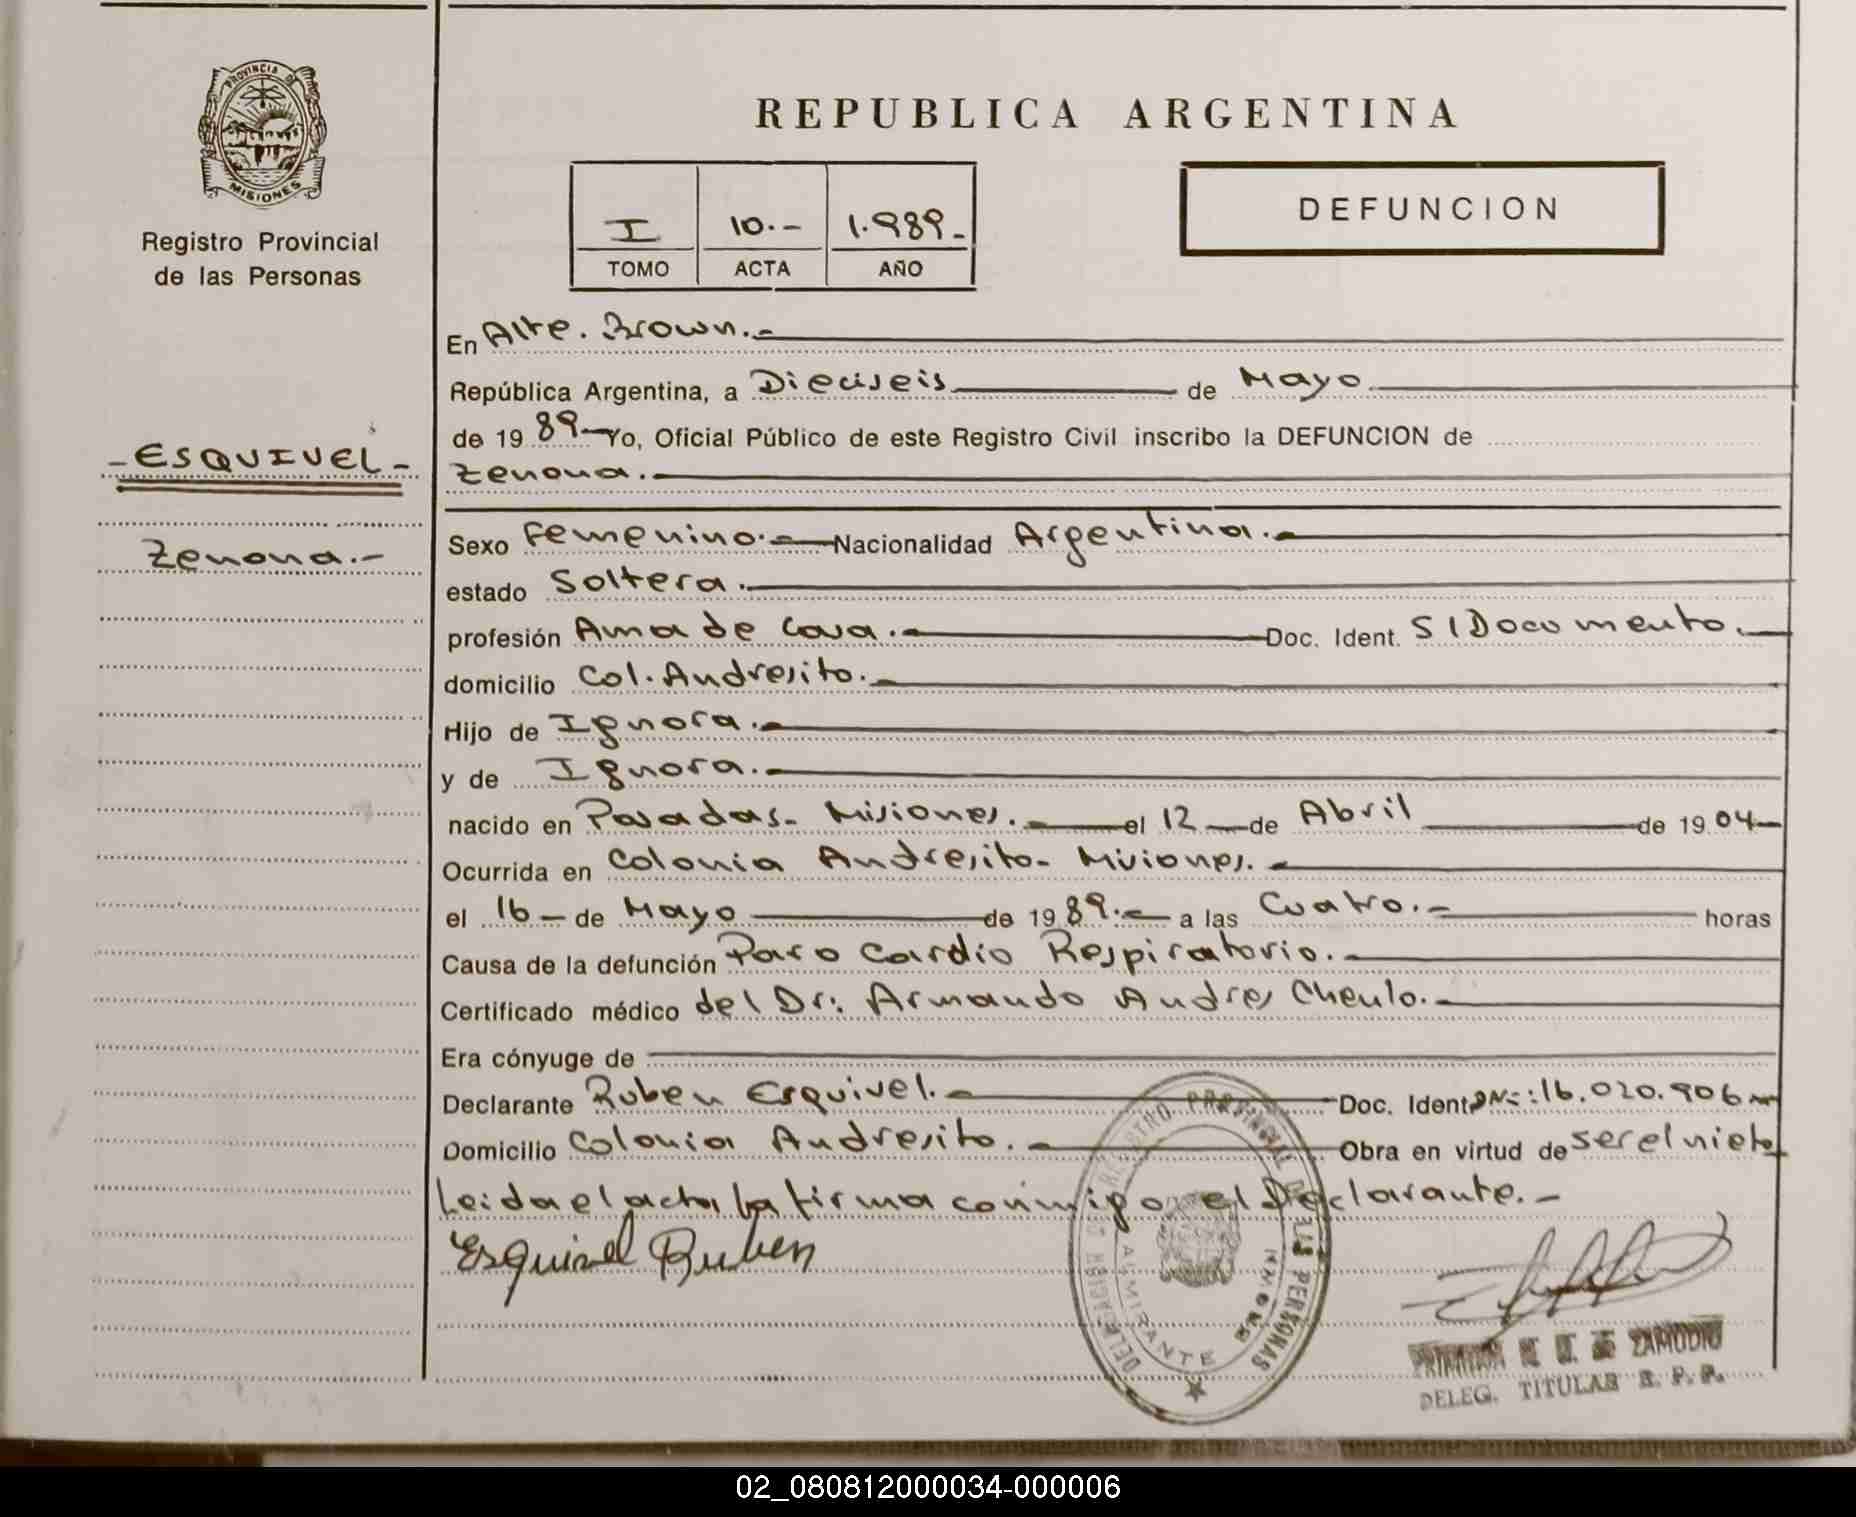 PROVINCIA DE
MISIONES
Registro Provincial
de las Personas
- ESQUIVEL -
Zenona.-
REPUBLICA ARGENTINA
I 10.- 1.989-
TOMO ACTA AÑO
DEFUNCION
En Alte. Brown.-
República Argentina, a Dieciseis de Mayo
de 19 89 Yo, Oficial Público de este Registro Civil inscribo la DEFUNCION de
Zenona.
Sexo Femenino.- Nacionalidad Argentina.-
estado Soltera.
profesión Ama de Casa.- Doc. Ident. S/Documento.-
domicilio Col. Andresito.-
Hijo de Ignora.-
y de Ignora.-
nacido en Posadas- Misiones.- el 12 de Abril de 19 04
Ocurrida en Colonia Andresito- Misiones.-
el 16 de Mayo de 19 89.- a las Cuatro.- horas
Causa de la defunción Paro Cardio Respiratorio.-
Certificado médico del Dr: Armando Andres
Era cónyuge de
Declarante Ruben Esquivel.- Doc. Ident 16.020.906
Domicilio Colonia Andresito.- Obra en virtud de ser el nieto
Leida el acta la firma conmigo el Declarante.-
Esquivel Ruben
REGISTRO PROVINCIAL DE LAS PERSONAS
ALMIRANTE BROWN
ZAMUDIO
DELEG. TITULAR R. P. P.
02_080812000034-000006